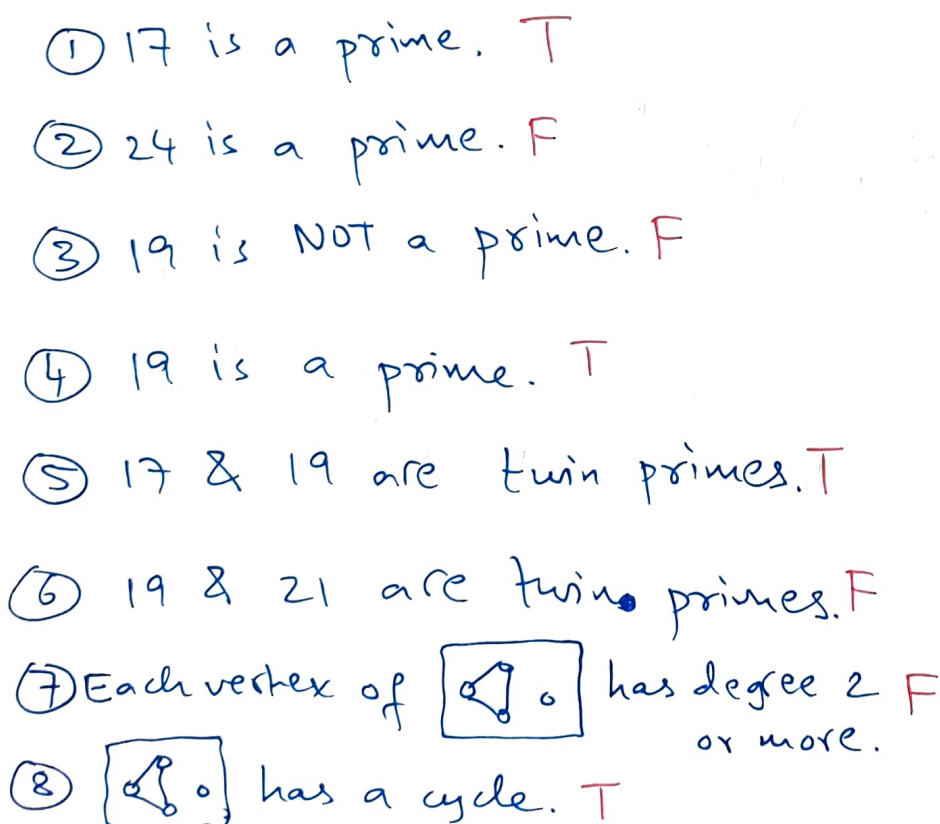 ① 17 is a prime. T
② 24 is a prime. F
③ 19 is NOT a prime. F
④ 19 is a prime. T
⑤ 17 & 19 are twin primes. T
⑥ 19 & 21 are twin primes. F
⑦ Each vertex of has degree 2 F
or more.
⑧ has a cycle. T